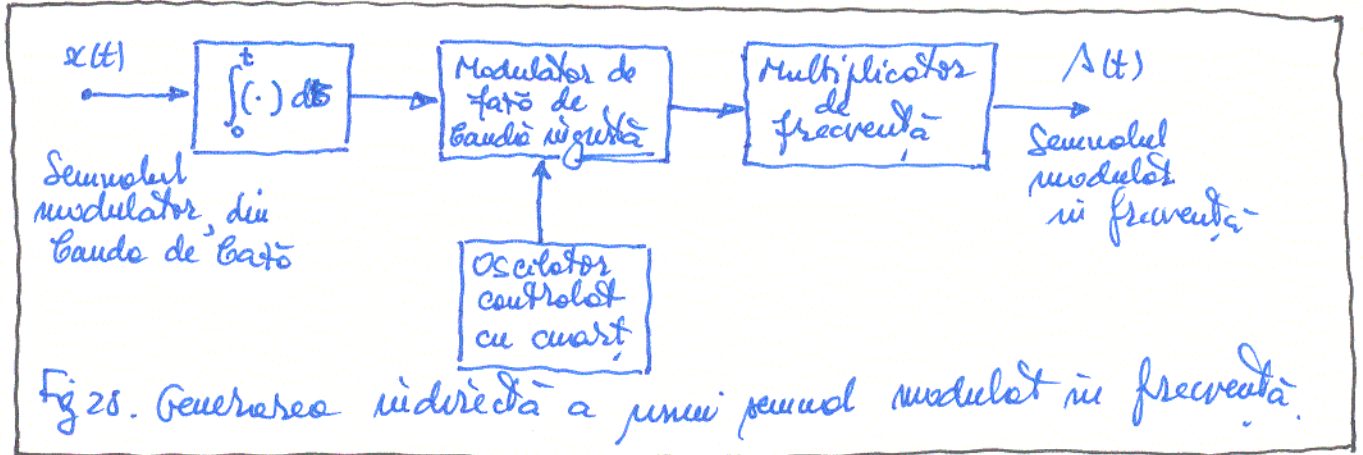 x(t)
∫₀ᵗ(·) dτ
Modulator de
fază de
bandă îngustă
Multiplicator
de
frecvență
s(t)
Semnalul
modulator, din
banda de bază
Semnalul
modulat
în frecvență
Oscilator
controlat
cu cuarț
Fig 28. Generarea indirectă a unui semnal modulat în frecvență.